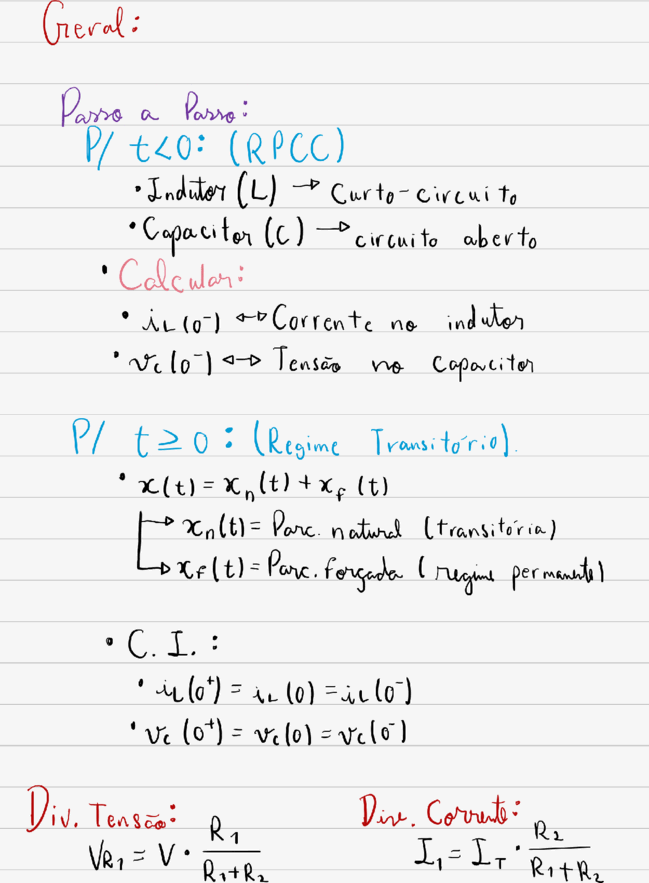 Geral:
Passo a Passo:
P/ t<0: (RPCC)
• Indutor (L) → Curto-circuito
• Capacitor (C) → circuito aberto
• Calcular:
• iL(0⁻) ↔ Corrente no indutor
• vc(0⁻) ↔ Tensão no capacitor
P/ t ≥ 0: (Regime Transitório).
• x(t) = xn(t) + xf(t)
→ xn(t) = Parc. natural (transitória)
→ xf(t) = Parc. forçada (regime permanente)
• C. I.:
• iL(0⁺) = iL(0) = iL(0⁻)
• vc(0⁺) = vc(0) = vc(0⁻)
Div. Tensão:
VR1 = V · R1/(R1+R2)
Div. Corrente:
I1 = IT · R2/(R1+R2)